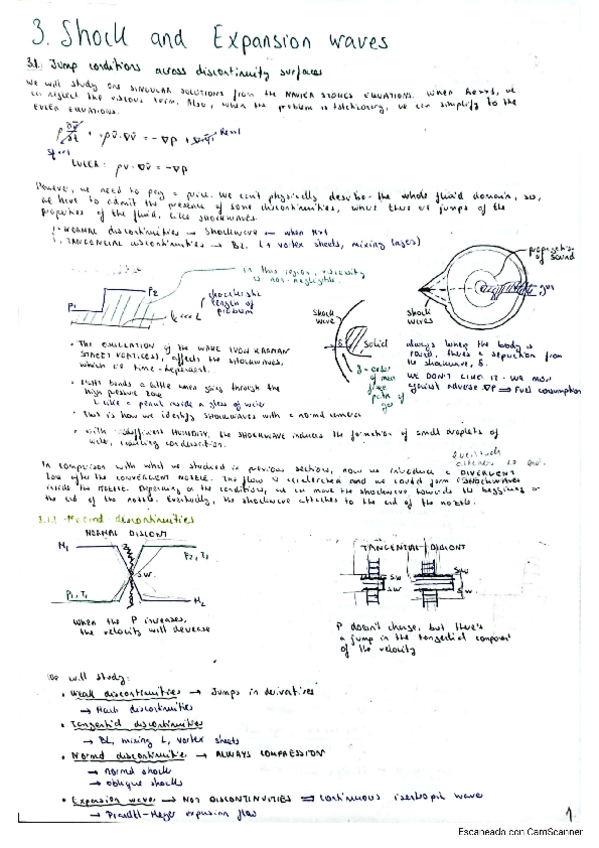 3. Shock and Expansion waves
3.1. Jump conditions across discontinuity surfaces
We will study one SINGULAR SOLUTIONS from the NAVIER STOKES EQUATIONS. When Re>>1, we
can neglect the viscous term. Also, when the problem is stationary, we can simplify to the
EULER EQUATIONS.
Re>>1
St<<1
EULER: ρv·∇v = -∇p
However, we need to pay a price. We can't physically describe the whole fluid domain, so,
we have to admit the presence of some discontinuities, where there are jumps of the
properties of the fluid, like shockwaves.
NORMAL discontinuities → Shockwave when M>1
TANGENCIAL discontinuities → BL (+ vortex sheets, mixing layer)
in this region, viscosity
is not negligible
P1
P2
characteristic
length of
problem
shock
wave
solid
δ = order
of mean
free
path of
gas
shock
waves
propagation
of sound
always when the body is
round, there's a separation from
the shockwave, δ.
WE DON'T LIKE IT. We move
against adverse ∇P ⇒ Fuel consumption
• The OSCILLATION of the WAKE (VON KARMAN
STREET VORTICES), affects the shockwaves,
which are time-dependent.
• Light bends a little when going through the
high pressure zone
Like a pencil inside a glass of water
• This is how we identify SHOCKWAVES with a normal camera
• with sufficient HUMIDITY, the SHOCKWAVE induces the formation of small droplets of
water, inducing condensation.
In comparison with what we studied in previous sections, now we introduce a DIVERGENT
after the CONVERGENT NOZZLE. The flow is accelerated and we could form SHOCKWAVES
inside the nozzle. Depending on the conditions, we can move the shockwave towards the beginning or
the end of the nozzle. Eventually, the shockwave attaches to the end of the nozzle.
3.1.1 Normal discontinuities
NORMAL DISCONT
M1
P2, T2
S.W.
P1, T1
M2
When the P increases,
the velocity will decrease
TANGENTIAL DISCONT
SW
SW
SW
S.W.
P doesn't change, but there's
a jump in the tangential component
of the velocity
We will study:
• Weak discontinuities → Jumps in derivatives
→ Mach discontinuities
• Tangential discontinuities
→ BL, mixing L, vortex sheets
• Normal discontinuities → ALWAYS COMPRESSION
→ normal shock
→ oblique shocks
• Expansion waves → NOT DISCONTINUITIES ⇒ continuous isentropic wave
→ Prandtl-Meyer expansion flow
1
Escaneado con CamScanner